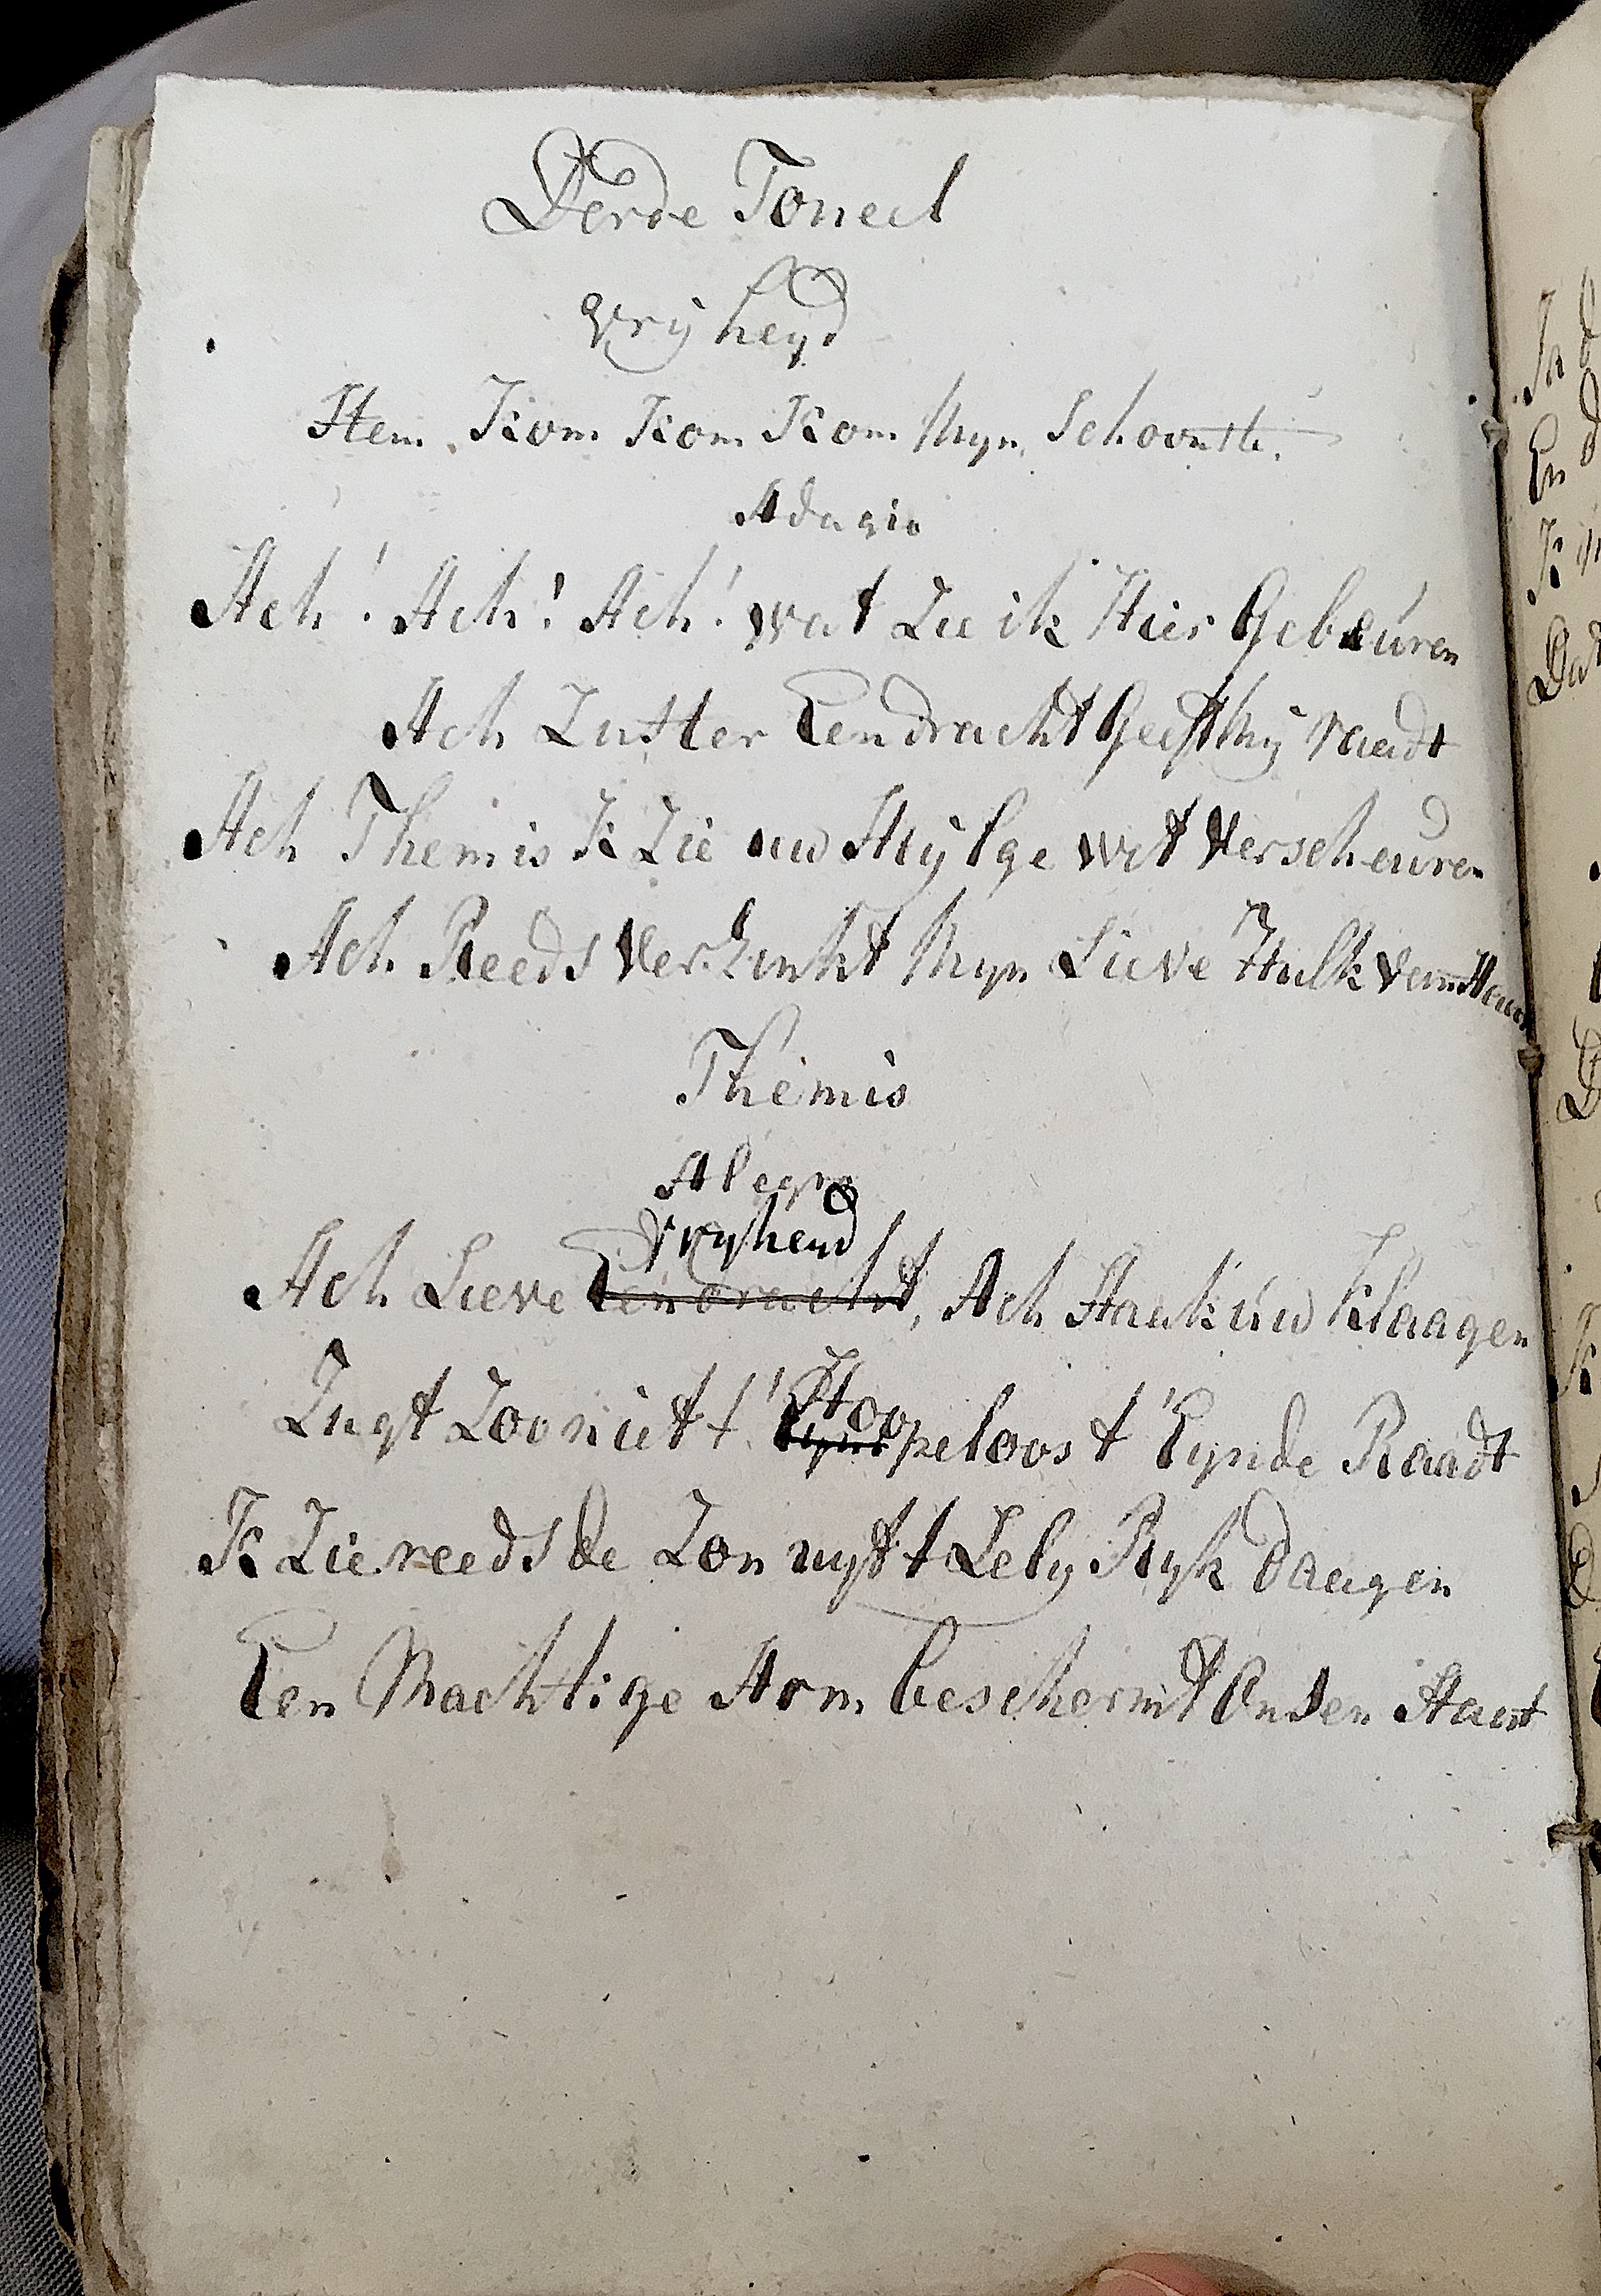 Derde Toneel
Vrijheyd
Stem Kom Kom Kom Myn Schoonste.
Adagio
Ach! Ach! Ach! wat Zie ik Hier Gebeuren
Ach Zuster Eendracht Geeft Mij raadt
Ach Themis K Zie uw Heylge wet Verscheuren
Ach Reeds Verzinkt Myn Lieve Hulk
Themis
Alegro
Vryheyd
Ach Lieve Eendracht, Ach Staek uw Klaagen
Zugt Zoo niet t' Hoopeloost Eynde Raadt
K Zie reeds de Zon uyt t Lely Ryk daagen
Een Machtige Arm beschermt Onsen Staat
Ja d
En d
K
Dat